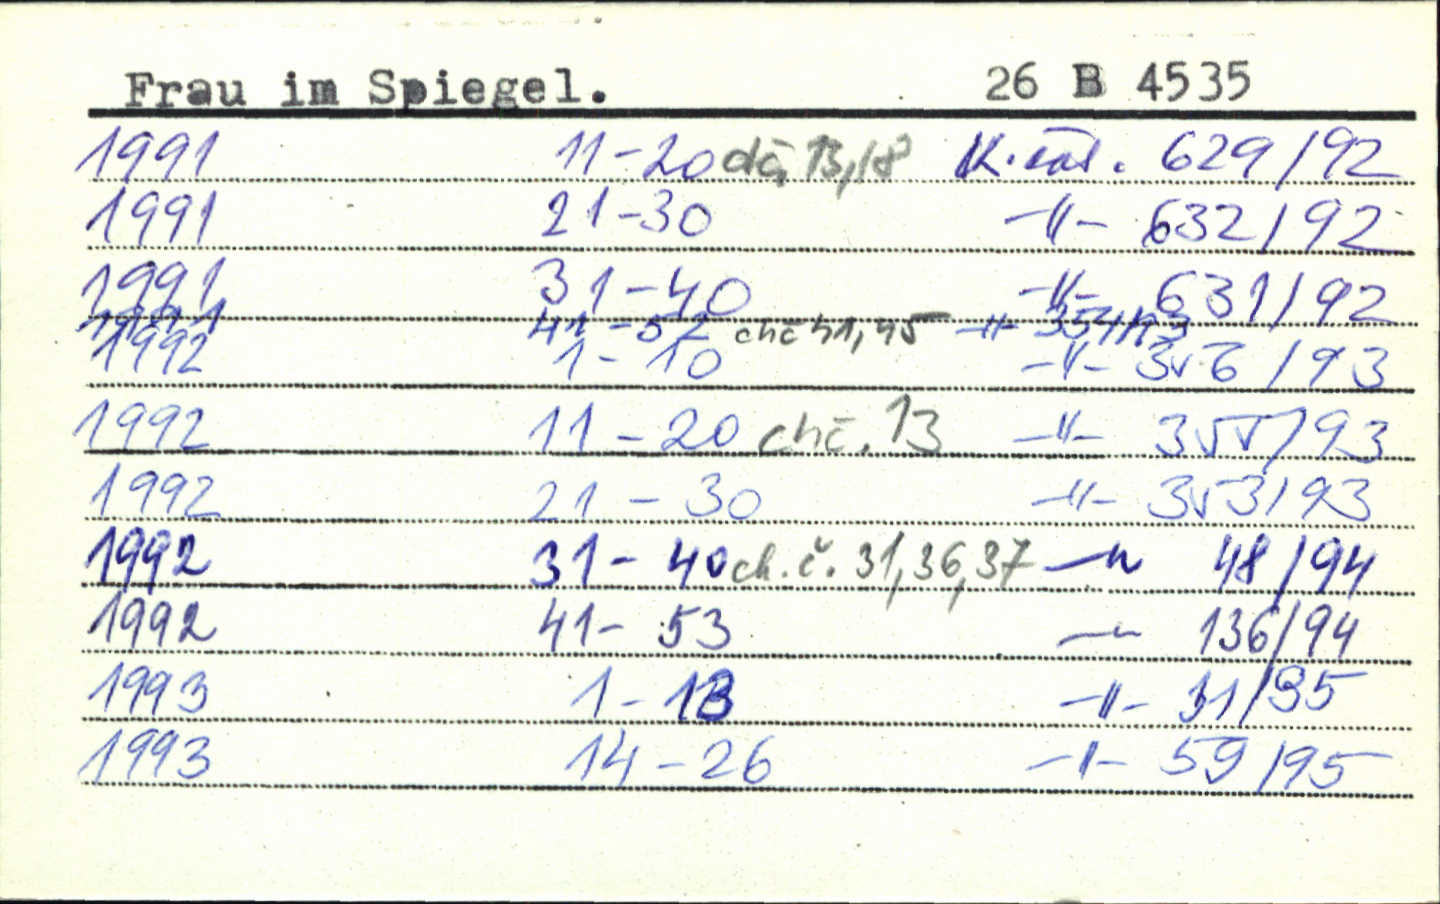 Frau im Spiegel. 26 B 4535
1991 11-20 dč, 13,18 K. 629/92
1991 21-30 -"- 632/92
1991 31-40 -"- 631/92
1991 41-52 chč 41,45 -"- 354/93
1992 1-10 -"- 356/93
1992 11-20 chč. 13 -"- 355/93
1992 21-30 -"- 353/93
1992 31-40 ch.č. 31,36,37 -"- 48/94
1992 41-53 -"- 136/94
1993 1-13 -"- 31/95
1993 14-26 -"- 59/95